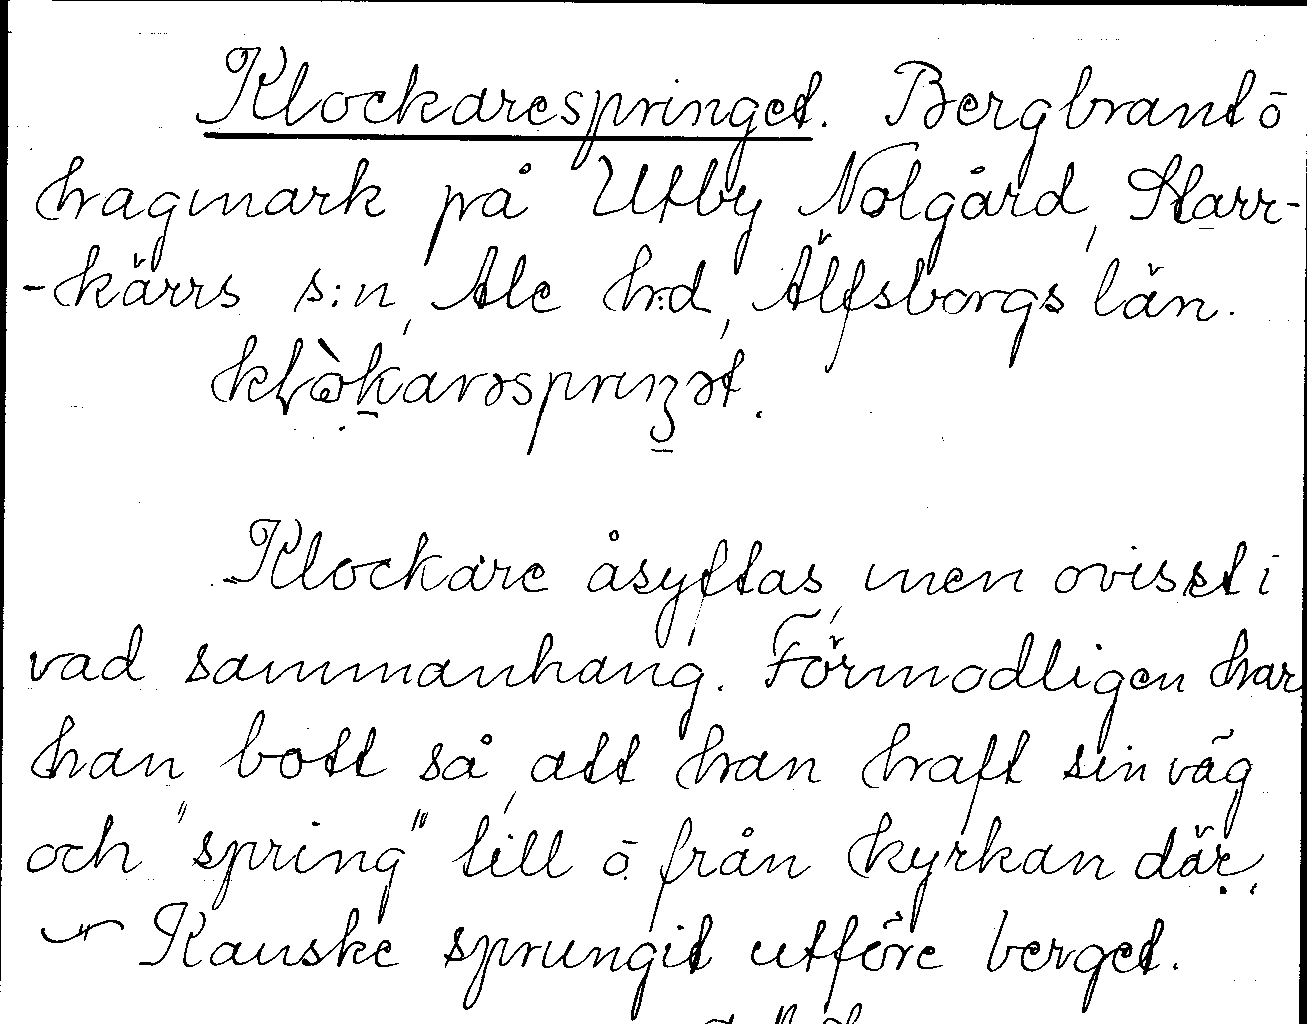 Klockarespringet. Bergbrant ō
hagmark på Utby Nolgård, Starr-
-kärrs s:n, Ale h:d, Älfsborgs län.

Klockare åsyftas, men ovisst i
vad sammanhang. Förmodligen har
han bott så, att han haft sin väg
och "spring" till ō från kyrkan där.
Kanske sprungit utföre berget.